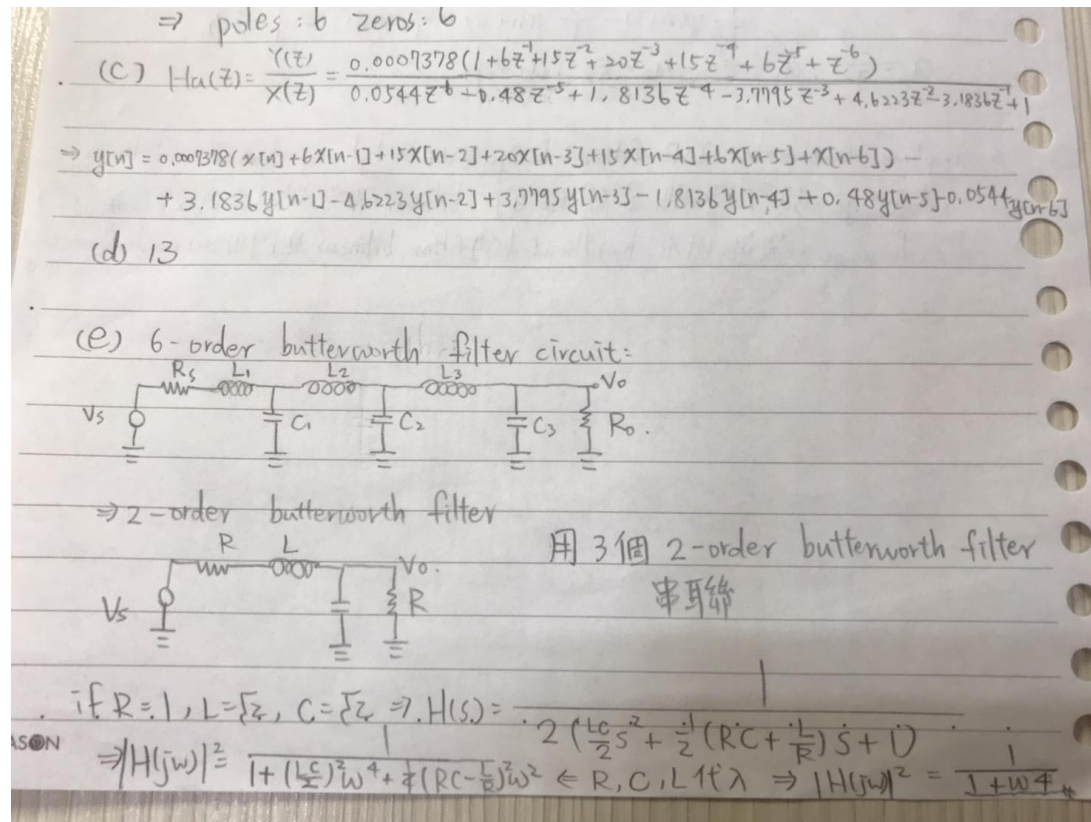 ⇒ poles : 6 zeros : 6
(c) Ha(z) = Y(z)/X(z) = 0.0007378(1+6z^-1+15z^-2+20z^-3+15z^-4+6z^-5+z^-6) / 0.0544z^-6-0.48z^-5+1.8136z^-4-3.7795z^-3+4.6223z^-2-3.1836z^-1+1
⇒ y[n] = 0.0007378(x[n]+6x[n-1]+15x[n-2]+20x[n-3]+15x[n-4]+6x[n-5]+x[n-6])-
+3.1836y[n-1]-4.6223y[n-2]+3.7795y[n-3]-1.8136y[n-4]+0.48y[n-5]-0.0544y[n-6]
(d) 13
(e) 6-order butterworth filter circuit:
Rs L1 L2 L3 Vo
Vs C1 C2 C3 Ro.
⇒ 2-order butterworth filter
用 3個 2-order butterworth filter
串聯
R L Vo.
Vs R
if R=1, L=√2, C=√2 ⇒ H(s) = 1 / 2(LC/2 s^2 + 1/2(RC+L/R)s+1)
⇒ |H(jw)|^2 = 1 / 1+(LC/2)^2w^4+1/4(RC-L/R)^2w^2 ← R,C,L代入 ⇒ |H(jw)|^2 = 1 / 1+w^4 #